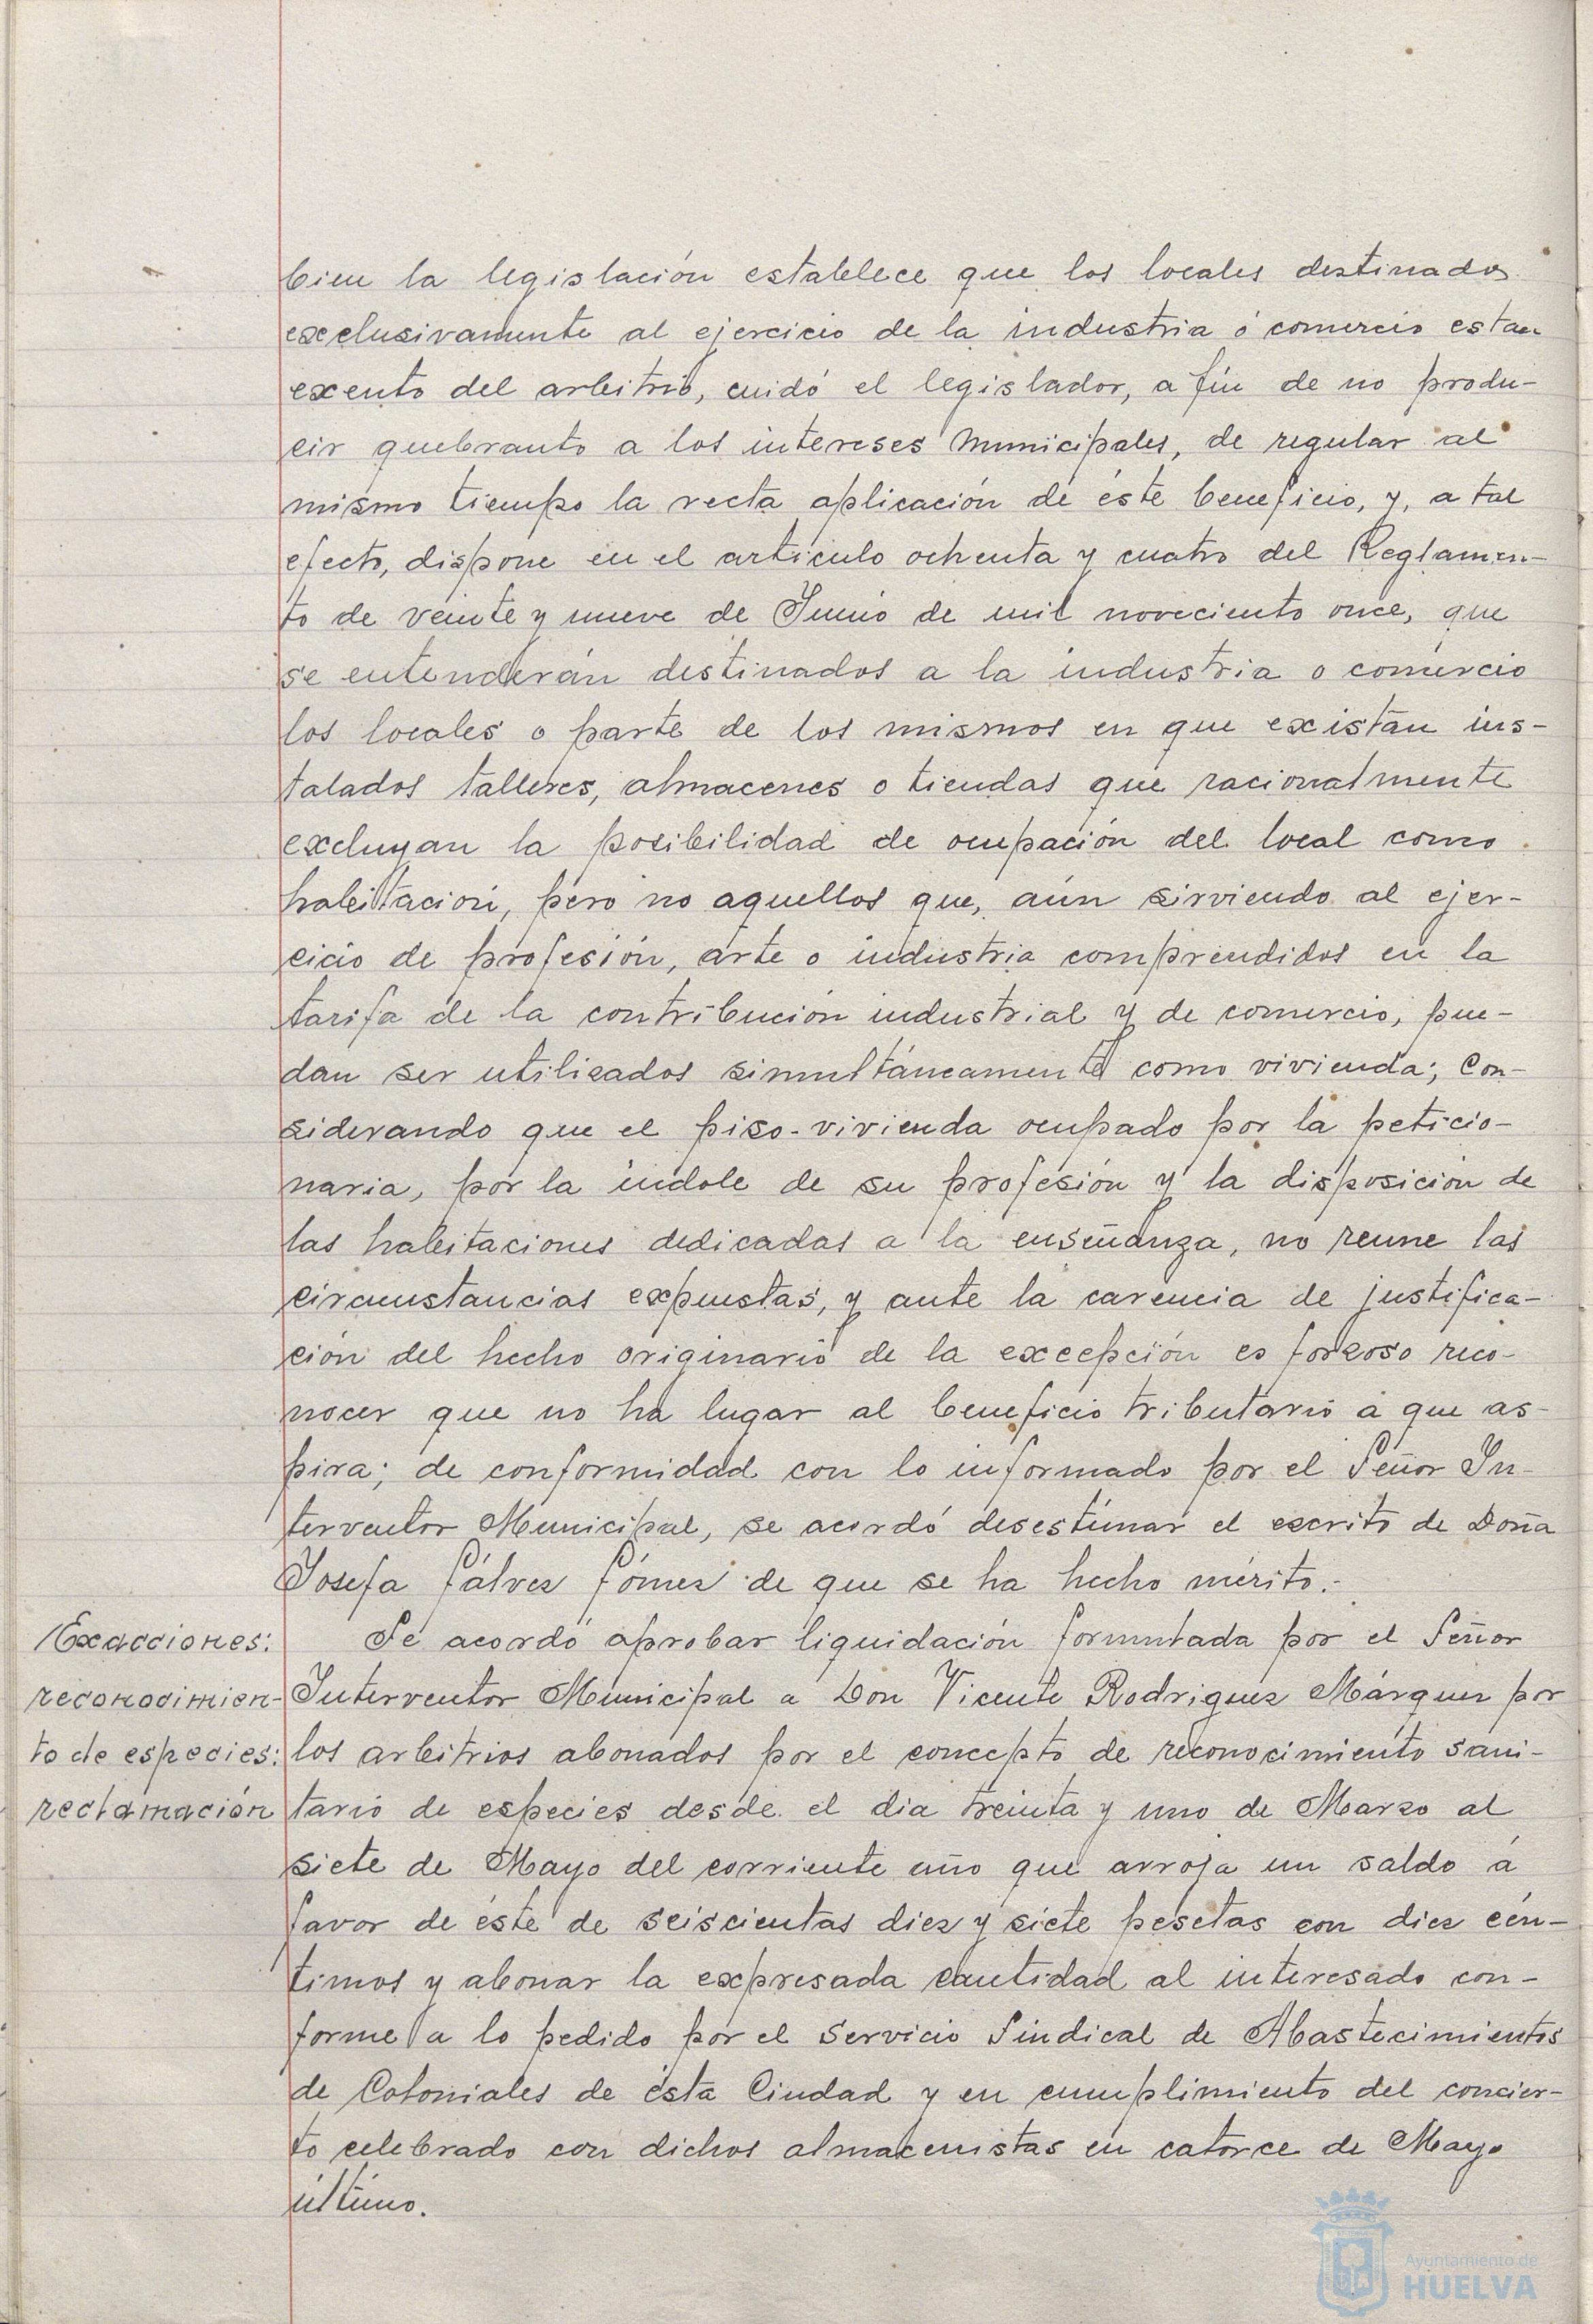 bien la legislación establece que los locales destinados
exclusivamente al ejercicio de la industria ó comercio estan
exento del arbitrio, cuidó el legislador, a fin de no produ-
cir quebranto a los intereses Municipales, de regular al
mismo tiempo la recta aplicación de éste beneficio, y, a tal
efecto, dispone en el articulo ochenta y cuatro del Reglamen-
to de veinte y nueve de Junio de mil novecientos once, que
se entenderán destinados a la industria o comercio
los locales o parte de los mismos en que existan ins-
talados talleres, almacenes o tiendas que racionalmente
excluyan la posibilidad de ocupación del local como
habitación, pero no aquellos que, aún sirviendo al ejer-
cicio de profesión, arte o industria comprendidos en la
tarifa de la contribución industrial y de comercio, pue-
dan ser utilizados simultáneamente como vivienda; Con-
siderando que el piso-vivienda ocupado por la peticio-
naria, por la indole de su profesión y la disposición de
las habitaciones dedicadas a la enseñanza, no reune las
circunstancias expuestas, y ante la carencia de justifica-
ción del hecho originario de la excepción es forzoso reco-
nocer que no ha lugar al beneficio tributario a que as-
pira; de conformidad con lo informado por el Señor In-
terventor Municipal, se acordó desestimar el escrito de Doña
Josefa Gálvez Gómez de que se ha hecho mérito.-
Exacciones:
reconocimien-
to de especies:
reclamación
Se acordó aprobar liquidación formulada por el Señor
Interventor Municipal a Don Vicente Rodriguez Márquez por
los arbitrios abonados por el concepto de reconocimiento sani-
tario de especies desde el dia treinta y uno de Marzo al
siete de Mayo del corriente año que arroja un saldo á
favor de éste de seiscientas diez y siete pesetas con diez cén-
timos y abonar la expresada cantidad al interesado con-
forme a lo pedido por el Servicio Sindical de Abastecimientos
de Coloniales de ésta Ciudad y en cumplimiento del concier-
to celebrado con dichos almacenistas en catorce de Mayo
último.
Ayuntamiento de
HUELVA